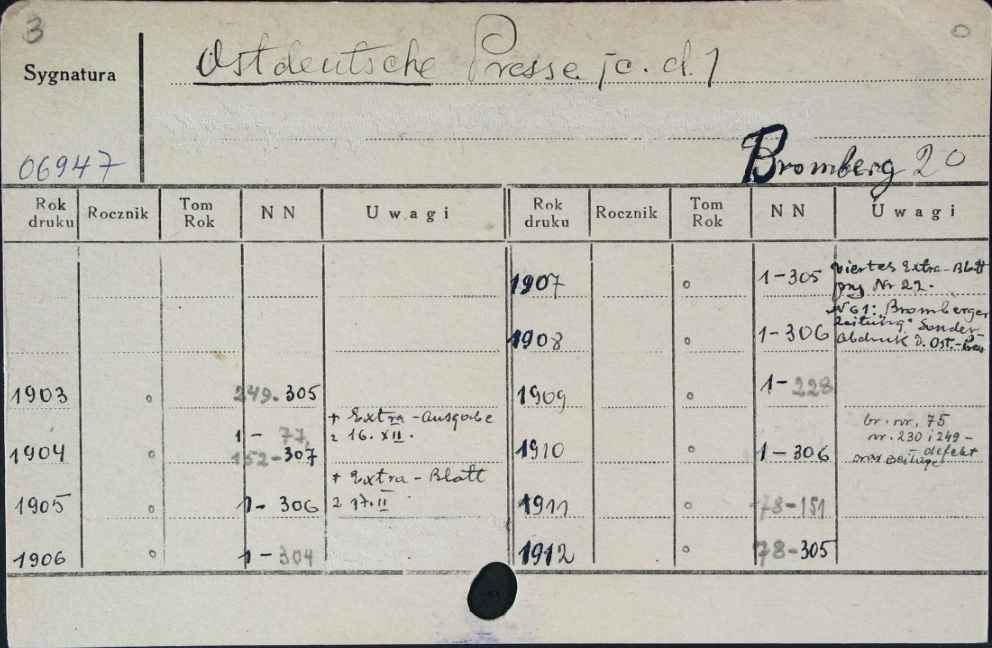 3
Ostdeutsche Presse /c. d./
Sygnatura
06947
Bromberg 20
Rok druku Rocznik Tom Rok NN Uwagi Rok druku Rocznik Tom Rok NN Uwagi
1907 1-305 viertes Extra-Blatt
przy Nr 22.
1908 1-306 N 61: Bromberger
Zeitung. Sonder-
Abdruck d. Ost.-
1903 249-305
1909 1-228
1904 1-77,
152-307
+ Extra-Ausgabe
z 16. XII.
1910 1-306 br. nr. 75
nr. 230 i 249-
defekt
oraz Beilage
1905 1-306 + Extra-Blatt
z 17. II
1911 78-151
1906 1-304
1912 78-305